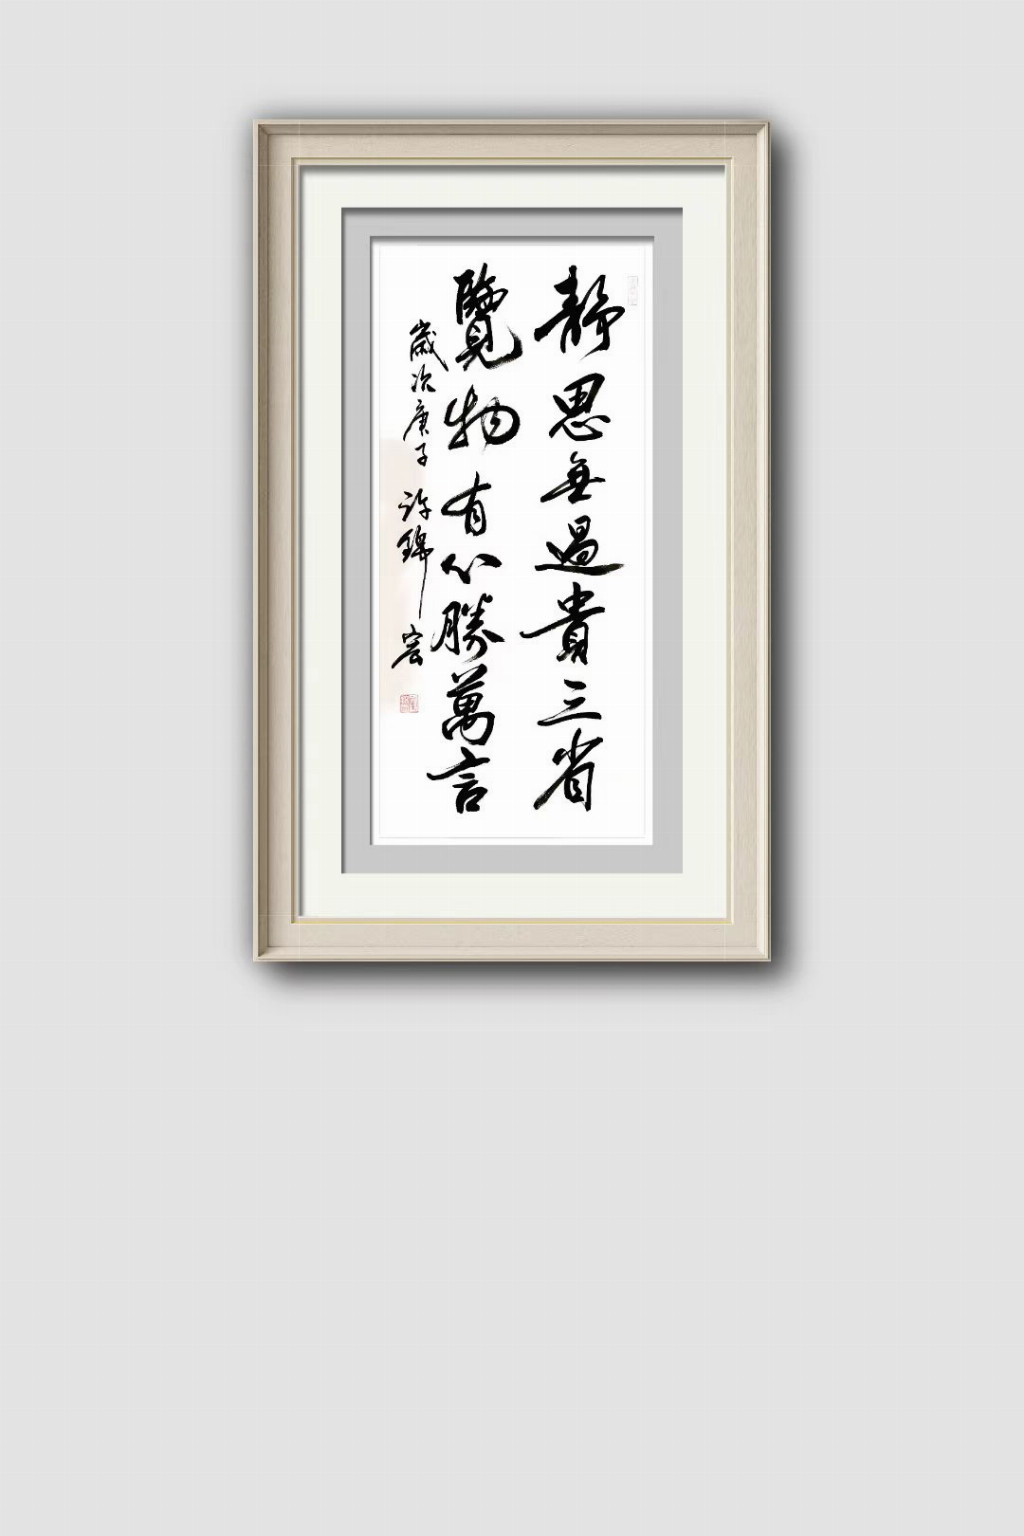 靜思無過貴三省
覽物有心勝萬言
歲次庚子 許錦宏